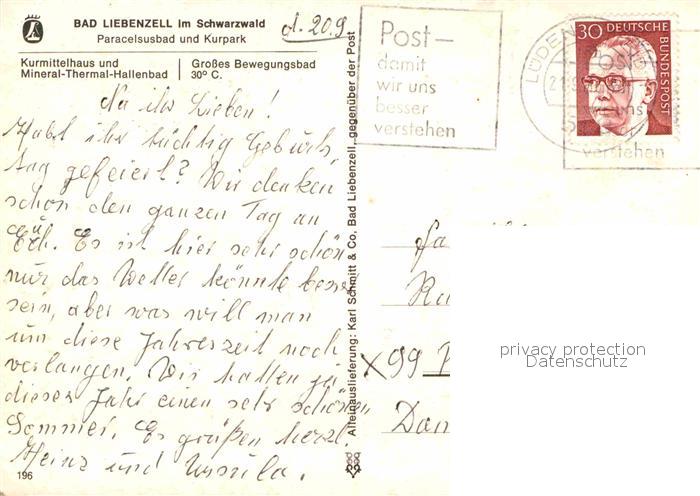 BAD LIEBENZELL im Schwarzwald
Paracelsusbad und Kurpark
Kurmittelhaus und
Mineral-Thermal-Hallenbad
Großes Bewegungsbad
30° C.
d. 20.9.
Na ihr Lieben!
Habt ihr tüchtig Geburts
tag gefeiert? Wir denken
schon den ganzen Tag an
Euch. Es ist hier sehr schön
nur das Wetter könnte besser
sein, aber was will man
um diese Jahreszeit noch
verlangen. Wir hatten ja
dieses Jahr einen sehr schönen
Sommer. Es grüßen herzl.
Heinz und Ursula.
196
Alleinauslieferung: Karl Schmitt & Co. Bad Liebenzell, gegenüber der Post
Post-
damit
wir uns
besser
verstehen
LÜDEN
30 DEUTSCHE
BUNDESPOST
verstehen
Fa
x99
Dan
privacy protection
Datenschutz